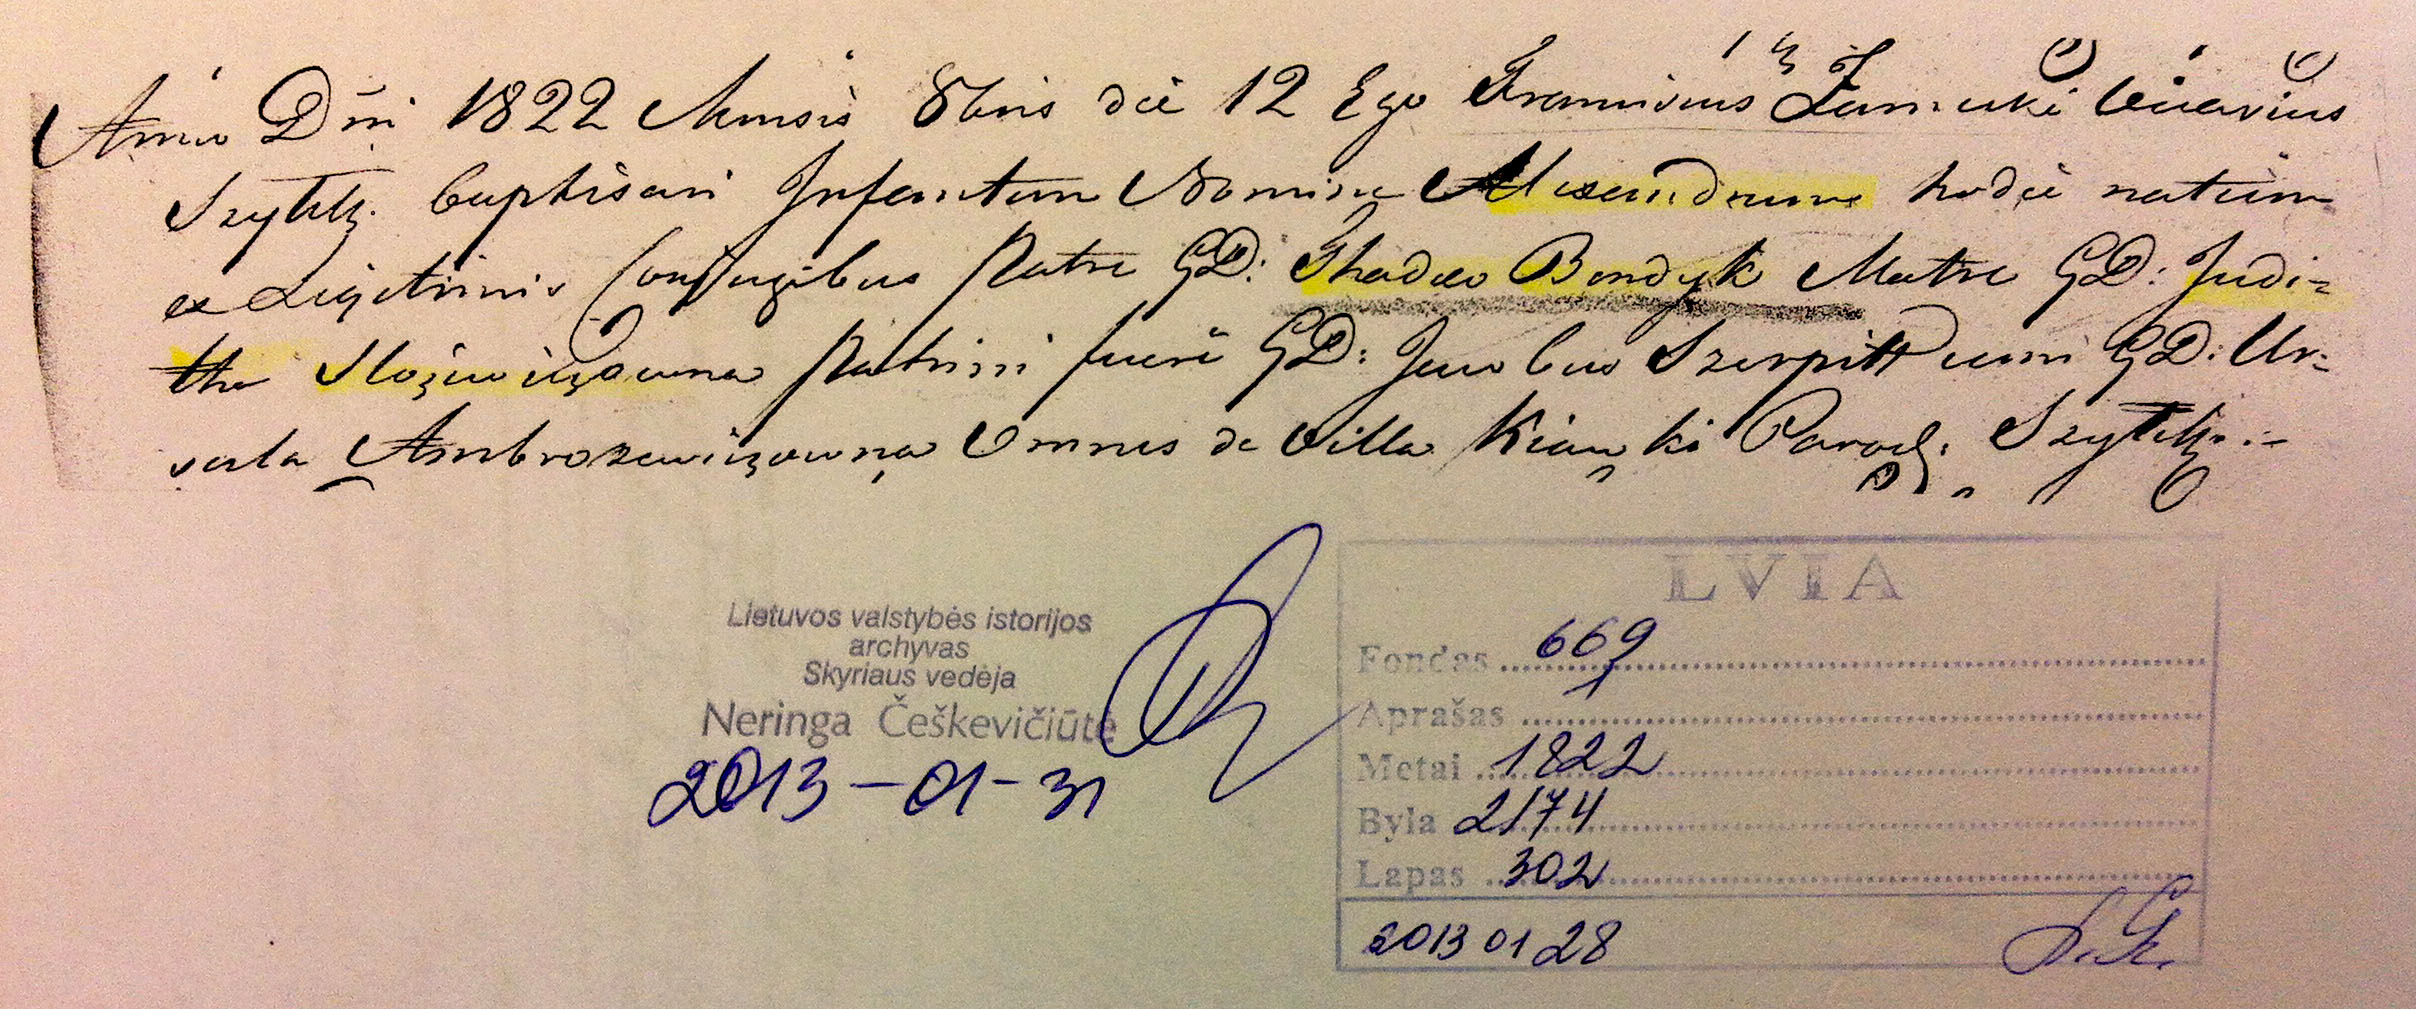 Anno Dni 1822 Mensis 8bris die 12 Ego Franciscus Vicarius
baptisavi Infantem Nomine Alexandrum hodie natum
ex Legitimis Conjugibus Patre GD: Thadeo Bondyk Matre GD: Judi=
tha Patrini fuere GD: Jacobus Szerpitt cum GD: Ur=
sula Ambrozewiczowna Omnes de Villa Paroch:
Lietuvos valstybės istorijos
archyvas
Skyriaus vedėja
Neringa Češkevičiūtė
2013-01-31
LVIA
Fondas 669
Aprašas
Metai 1822
Byla 2174
Lapas 302
2013 01 28